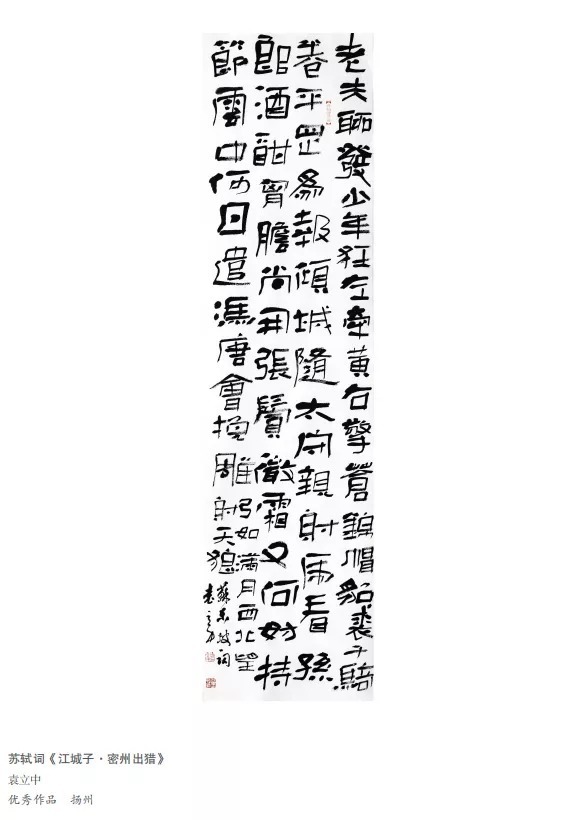 老夫聊發少年狂左牽黄右擎蒼錦帽貂裘千騎
卷平岡爲報傾城隨太守親射虎看孫
郎酒酣胷膽尚开張鬢微霜又何妨持
節雲中何日遣馮唐會挽雕
弓如滿月西北望
射天狼
蘇東坡詞
袁立中
苏轼词《江城子·密州出猎》
袁立中
优秀作品 扬州